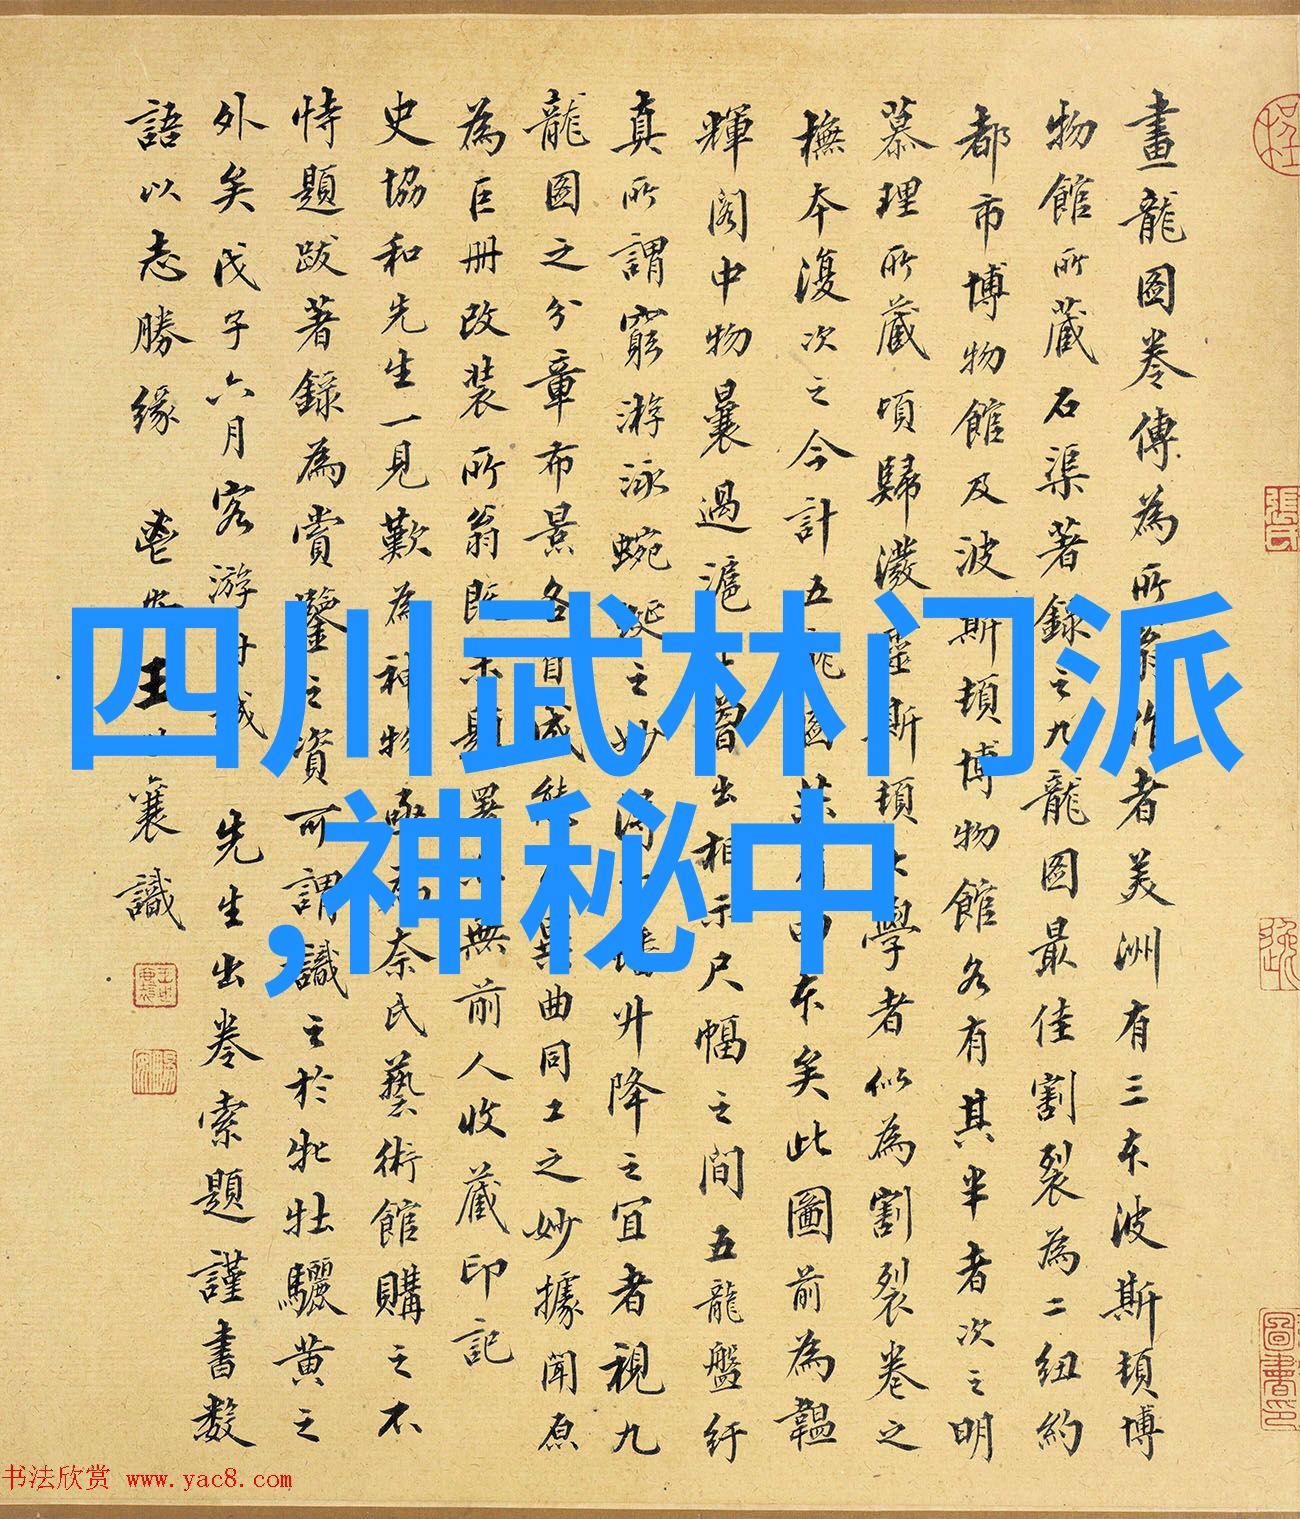 畫龍圖卷傳為所翁作者美洲有三本波斯頓博
物館所藏石渠著錄之九龍圖最佳割裂為二紐約
都市博物館及波斯頓博物館各有其半者次之明
慕理所藏頃歸瀲聖斯頓大學者似為割裂卷之
撫本復次之今計五龍圖共有四本矣此圖前為韞
輝閣中物曩過滬上曾出相示尺幅之間五龍盤紆
真所謂窮游泳蜿蜒之妙得蟠升降之宜者視九
龍圖之分章布景各自成態異曲同工之妙據聞原
為巨冊改裝所翁既未題署無前人收藏印記
史協和先生一見歎為神物亟為奈氏藝術館購之不
恃題跋著錄為賞鑒之資可謂識之於牝牡驪黃之
外矣戊子六月客游 先生出卷索題謹書數
語以志勝緣 王世襄識
四川武林门派
,神秘中
书法欣赏 www.yac8.com